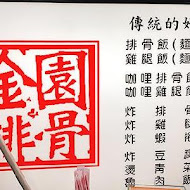 金園
排骨
傳統的好
排骨飯(麵
雞腿飯(麵
咖哩排骨飯
咖哩雞腿飯
炸排
炸雞
炸蝦
炸豆
燙青